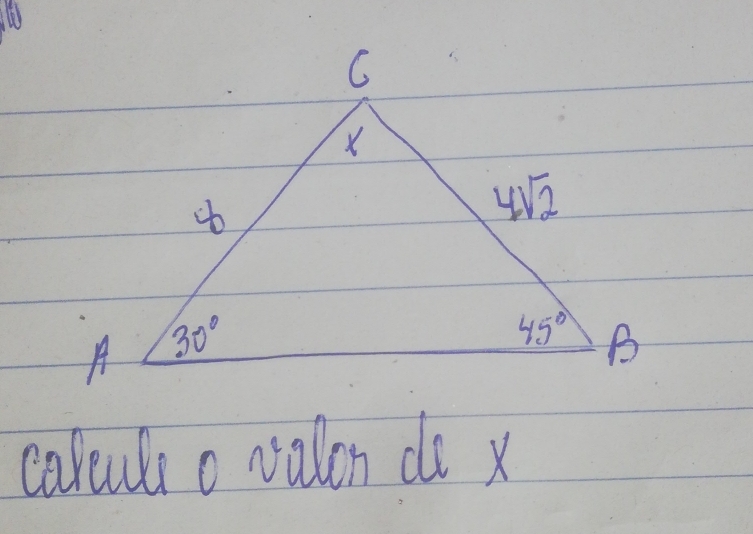 C
x
8
4√2
30°
45°
A
B
calcule o valor de x